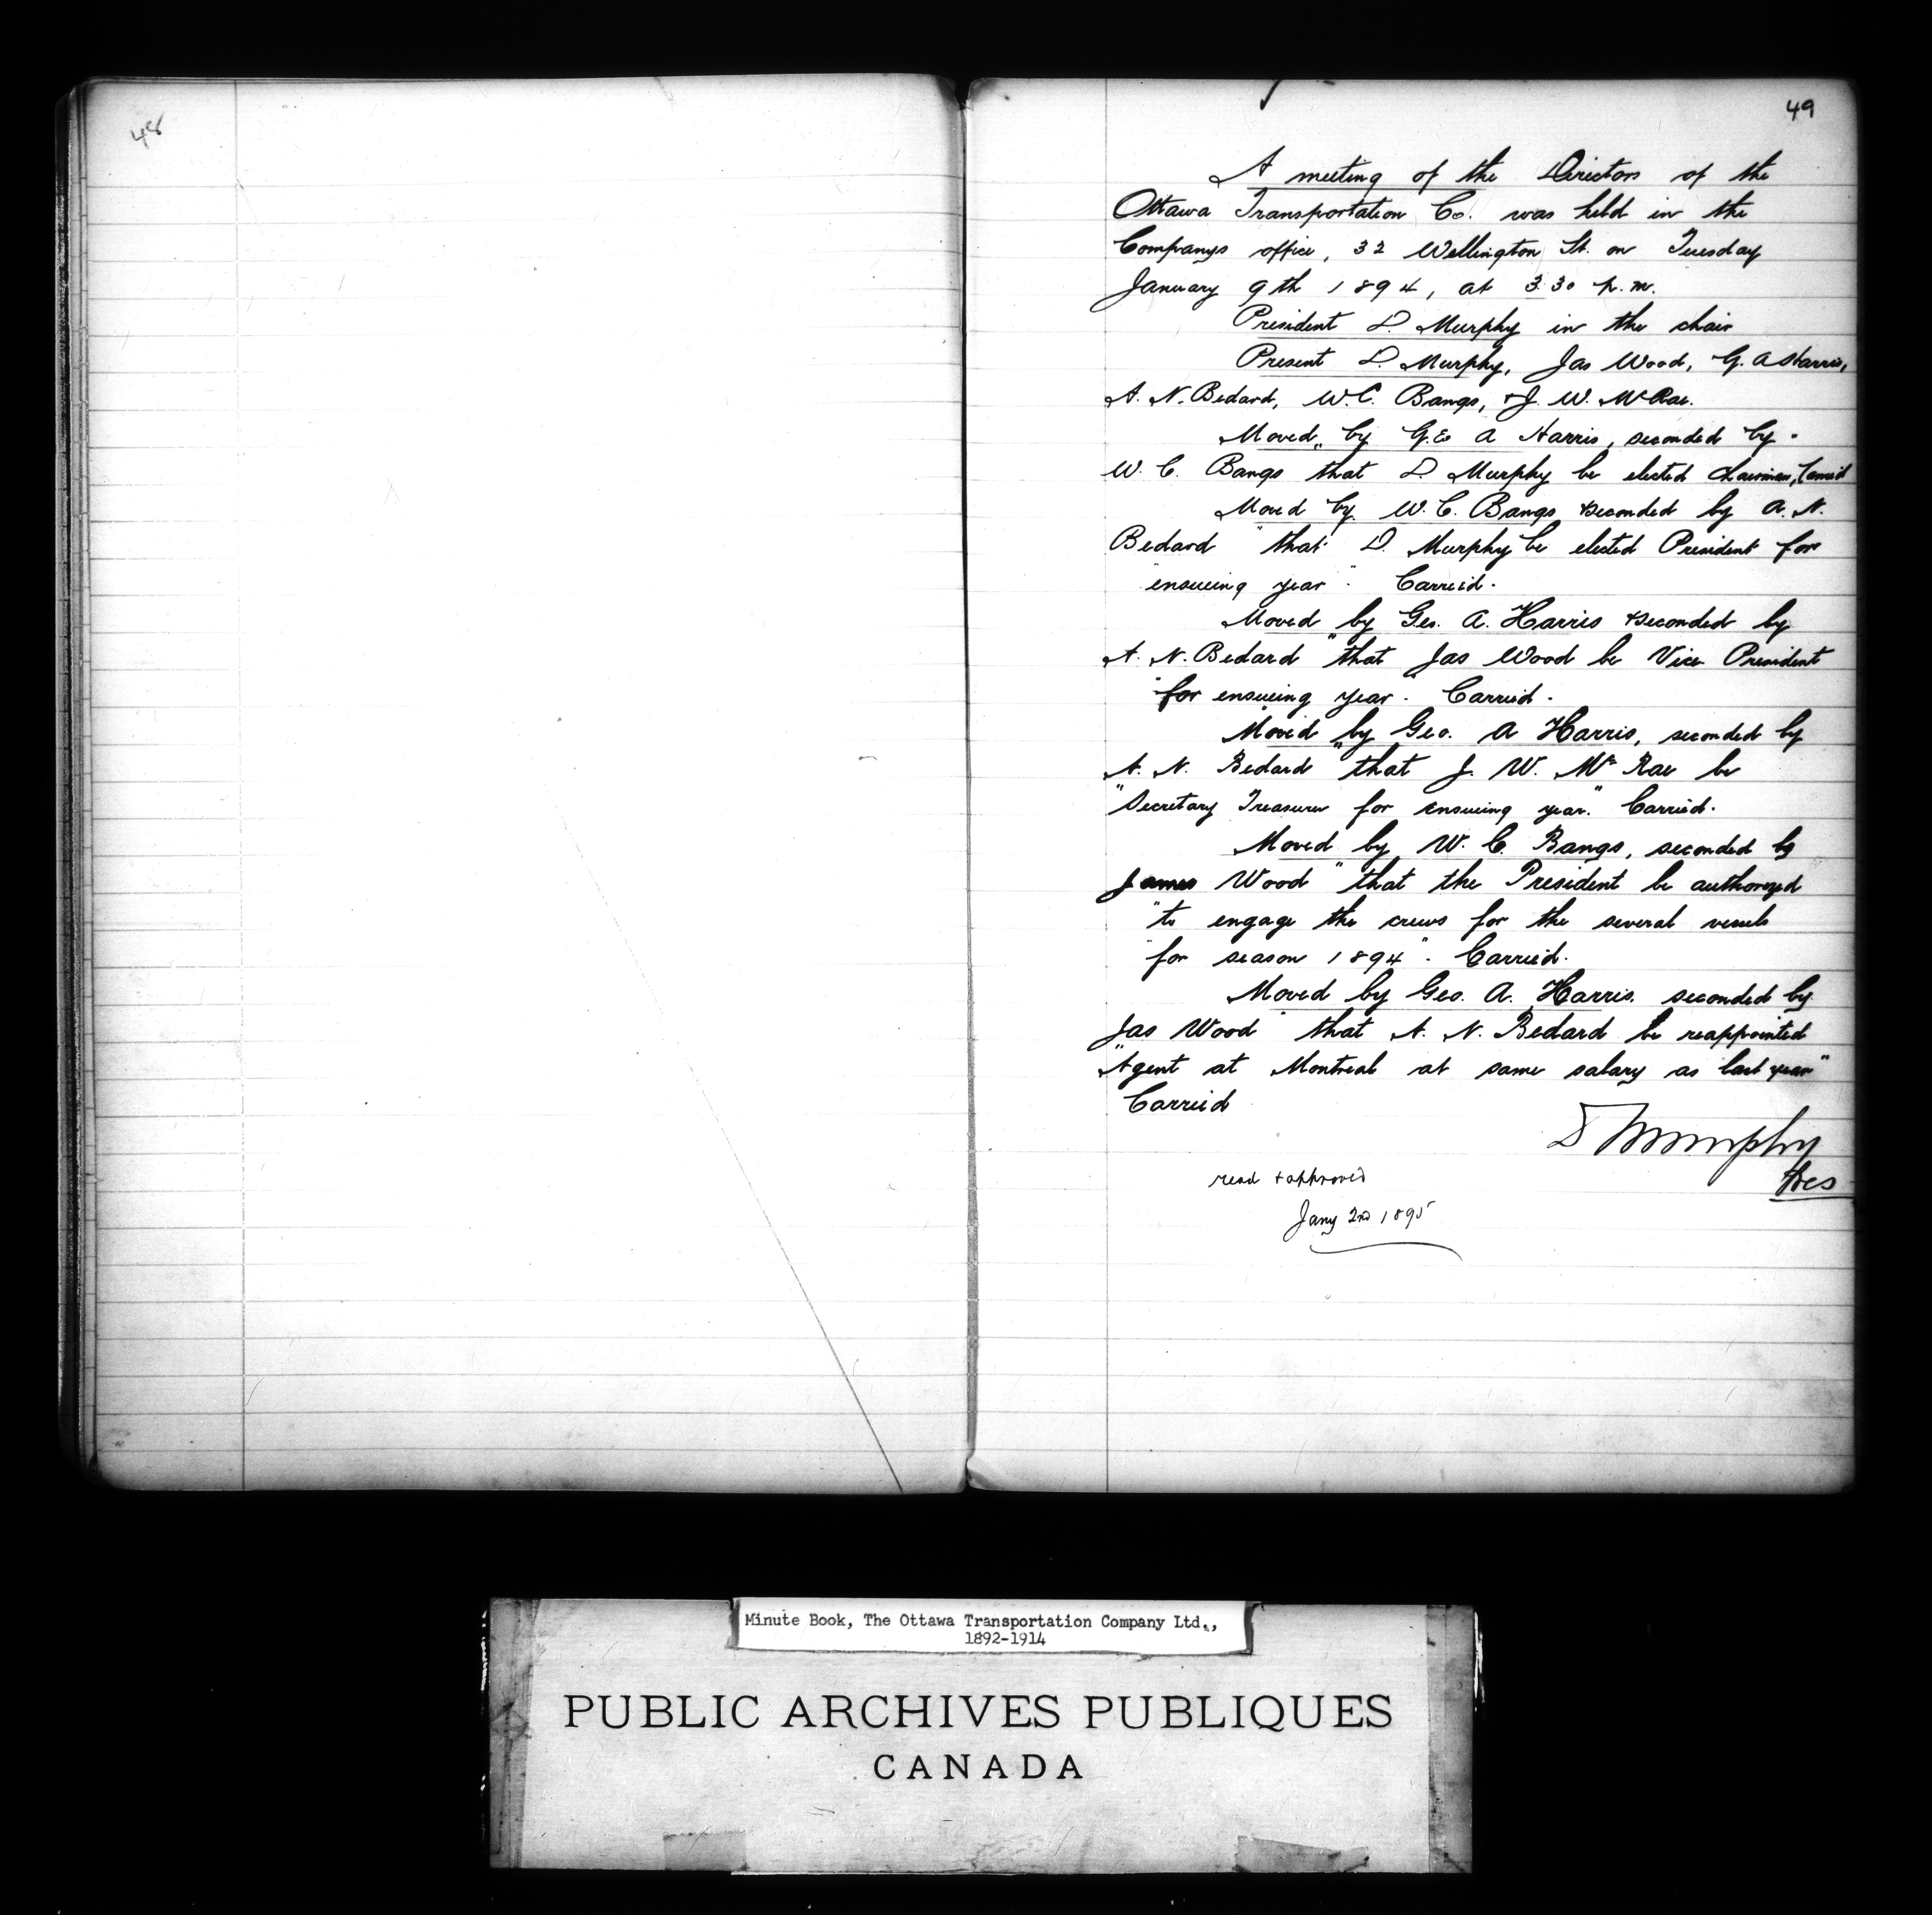 48
49
A meeting of the Directors of the
Ottawa Transportation Co. was held in the
Companys office, 32 Wellington St. on Tuesday
January 9th 1894, at 3.30 p.m.
President D. Murphy in the chair
Present D. Murphy, Jas Wood, G. A Harris,
A. N. Bedard, W. C. Bangs, & J. W. McRae.
Moved, by Geo A Harris, seconded by
W. C. Bangs that D. Murphy be elected chairman, Carried
Moved by W. C. Bangs & seconded by A. N.
Bedard "that D. Murphy be elected President for
"ensueing year". Carried.
Moved by Geo. A. Harris & seconded by
A. N. Bedard "that Jas Wood be Vice President
"for ensueing year. Carried.
Moved by Geo. A Harris, seconded by
A. N. Bedard "that J. W. McRae be
"Secretary Treasurer for ensueing year." Carried.
Moved by W. C. Bangs, seconded by
James Wood "that the President be authorized
"to engage the crews for the several vessels
"for season 1894". Carried.
Moved by Geo. A. Harris, seconded by
Jas Wood "that A. N. Bedard be reappointed
"Agent at Montreal at same salary as last year"
Carried
D Murphy
Pres
read & approved
Jany 2nd 1895
Minute Book, The Ottawa Transportation Company Ltd.,
1892-1914
PUBLIC ARCHIVES PUBLIQUES
CANADA